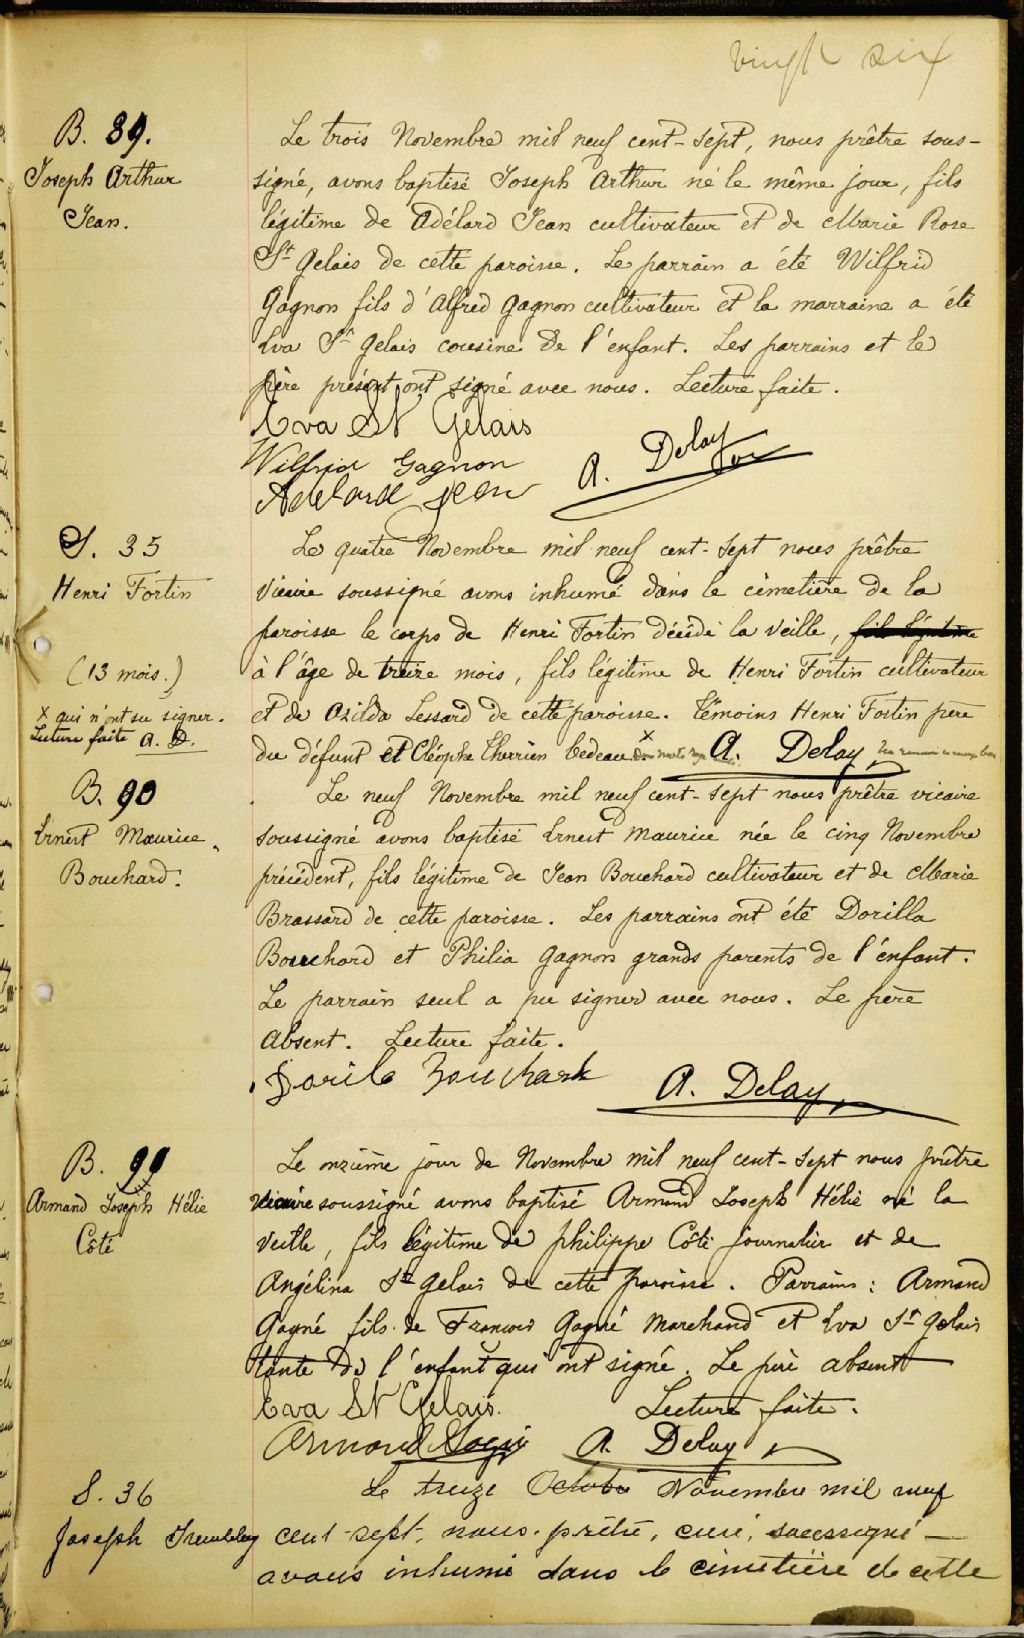 vingt six
B. 89.
Joseph Arthur
Jean.
Le trois Novembre mil neuf cent-sept, nous prêtre sous-
signé, avons baptisé Joseph Arthur né le même jour, fils
légitime de Adélard Jean cultivateur et de Marie Rose
St Gelais de cette paroisse. Le parrain a été Wilfrid
Gagnon fils d'Alfred Gagnon cultivateur et la marraine a été
Eva St Gelais cousine de l'enfant. Les parrains et le
père présent ont signé avec nous. Lecture faite.
Eva St Gelais
Wilfrid Gagnon
Adelard Jean
A. Delay
S. 35
Henri Fortin
(13 mois.)
x qui n'ont su signer.
Lecture faite A. D.
Le quatre Novembre mil neuf cent-sept nous prêtre
vicaire soussigné avons inhumé dans le cimetière de la
paroisse le corps de Henri Fortin décédé la veille, fils légitime
à l'âge de treize mois, fils légitime de Henri Fortin cultivateur
et de Ozilda Lessard de cette paroisse. Témoins Henri Fortin père
du défunt et Cléophe Therrien bedeau x A. Delay
B. 90
Ernest Maurice
Bouchard.
Le neuf Novembre mil neuf cent-sept nous prêtre vicaire
soussigné avons baptisé Ernest Maurice née le cinq Novembre
précédent, fils légitime de Jean Bouchard cultivateur et de Marie
Brassard de cette paroisse. Les parrains ont été Dorilla
Bouchard et Philia Gagnon grands parents de l'enfant.
Le parrain seul a pu signer avec nous. Le père
absent. Lecture faite.
Dorila Bouchard
A. Delay
B. 91
Armand Joseph Hélie
Côté
Le onzième jour de Novembre mil neuf cent-sept nous prêtre
vicaire soussigné avons baptisé Armand Joseph Hélie né la
veille, fils légitime de Philippe Côté journalier et de
Angélina St Gelais de cette paroisse. Parrains: Armand
Gagné fils de François Gagné Marchand et Eva St Gelais
tante de l'enfant qui ont signé. Le père absent
Eva St Gelais. Lecture faite.
Armand Gagné A. Delay
S. 36
Joseph Tremblay
Le treize Octobre Novembre mil neuf
cent-sept, nous prêtre, curé, soussigné
avons inhumé dans le cimetière de cette